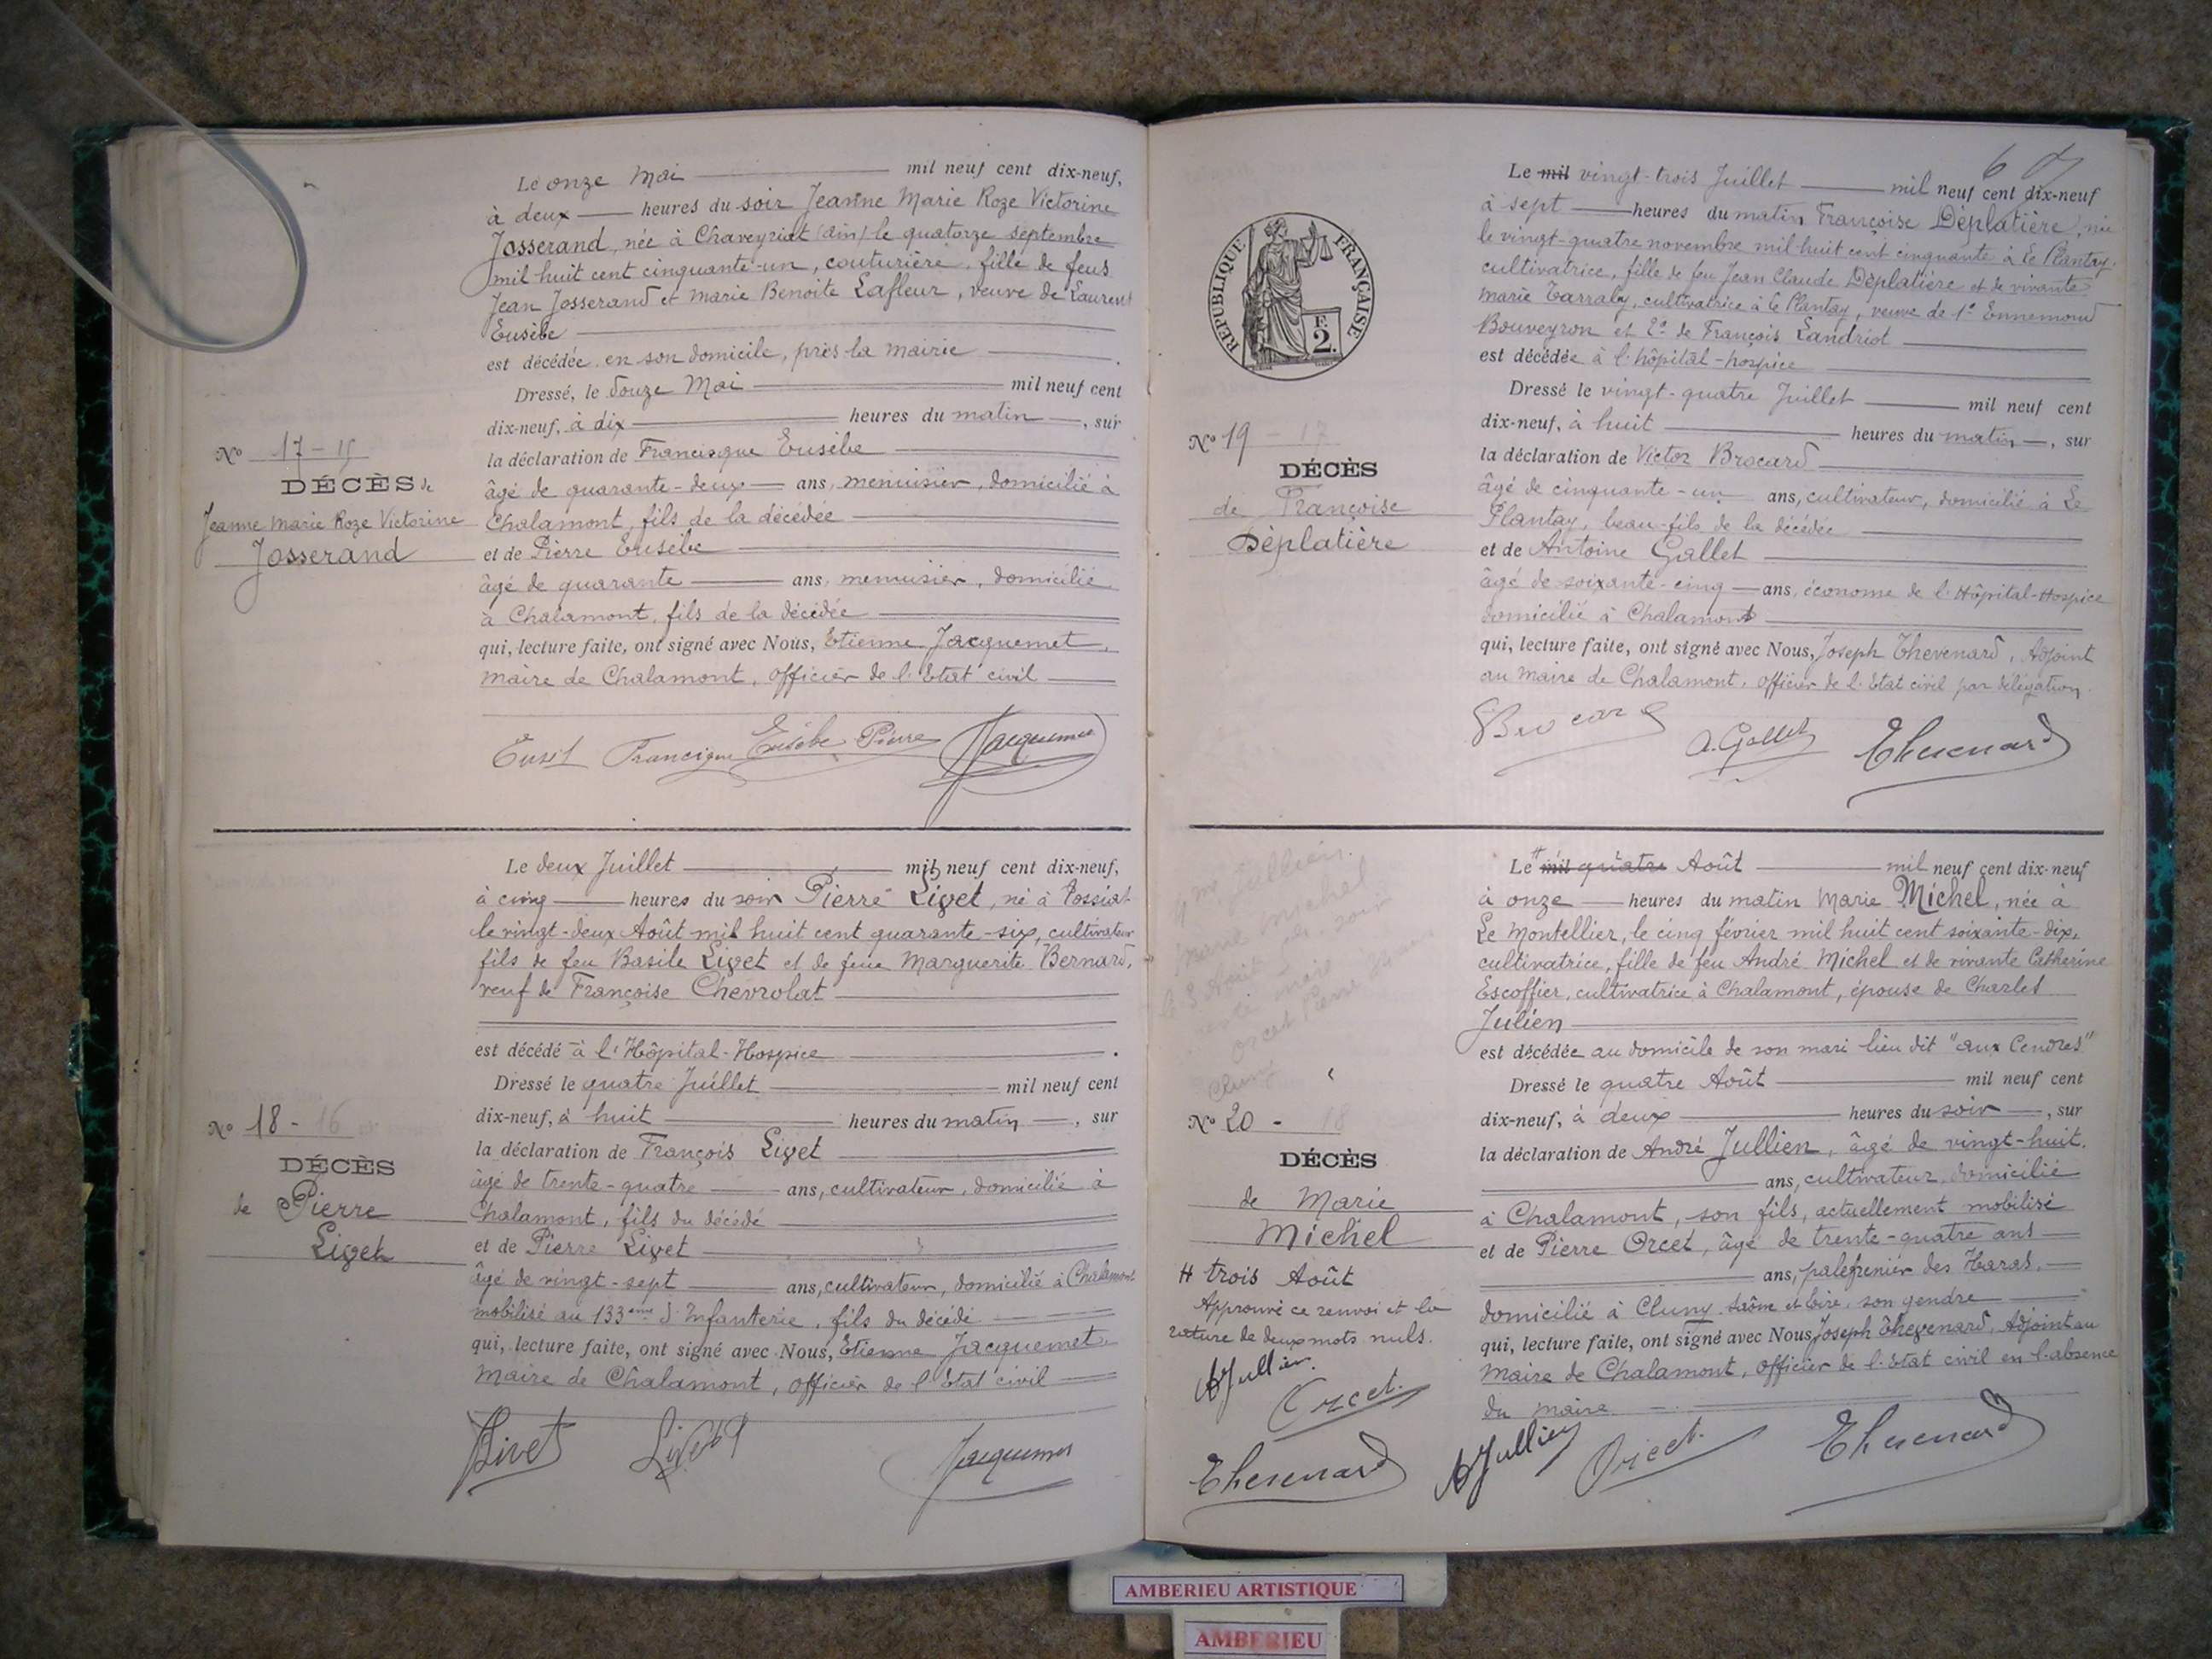 Le onze Mai mil neuf cent dix-neuf,
à deux heures du soir Jeanne Marie Roze Victorine
Josserand, née à Chaveyriat (ain) le quatorze septembre
mil huit cent cinquante-un, couturière, fille de feus
Jean Josserand et Marie Benoite Lafleur, veuve de Laurent
Eusèbe
est décédée en son domicile, près la mairie.
Dressé, le douze Mai mil neuf cent
dix-neuf, à dix heures du matin, sur
la déclaration de Francisque Eusèbe
âgé de quarante-deux ans, menuisier, domicilié à
Chalamont, fils de la décédée
et de Pierre Eusèbe
âgé de quarante ans, menuisier, domicilié
à Chalamont, fils de la décédée
qui, lecture faite, ont signé avec Nous, Etienne Jacquemet,
maire de Chalamont, officier de l'Etat civil
Francisque Eusèbe Pierre Jacquemet
N° 17 - 15
DÉCÈS de
Jeanne Marie Roze Victorine
Josserand
Le deux Juillet mil neuf cent dix-neuf,
à cinq heures du soir Pierre Livet, né à Tossiat
le vingt-deux Août mil huit cent quarante-six, cultivateur
fils de feu Basile Livet et de feue Marguerite Bernard,
veuf de Françoise Chevrolat
est décédé à l'Hôpital-Hospice.
Dressé le quatre Juillet mil neuf cent
dix-neuf, à huit heures du matin, sur
la déclaration de François Livet
âgé de trente-quatre ans, cultivateur, domicilié à
Chalamont, fils du décédé
et de Pierre Livet
âgé de vingt-sept ans, cultivateur, domicilié à Chalamont
mobilisé au 133eme d'Infanterie, fils du décédé
qui, lecture faite, ont signé avec Nous, Etienne Jacquemet
Maire de Chalamont, officier de l'Etat civil
Livet Livet Jacquemet
N° 18 - 16
DÉCÈS
de Pierre
Livet
67
Le mil vingt-trois Juillet mil neuf cent dix-neuf
à sept heures du matin Françoise Déplatière, née
le vingt-quatre novembre mil huit cent cinquante à Le Plantay,
cultivatrice, fille de feu Jean Claude Déplatière et de vivante
Marie Tarraby, cultivatrice à Le Plantay, veuve de 1° Ennemond
Bouveyron et 2° de François Landriot
est décédée à l'hôpital-hospice
Dressé le vingt-quatre Juillet mil neuf cent
dix-neuf, à huit heures du matin, sur
la déclaration de Victor Brocard
âgé de cinquante-un ans, cultivateur, domicilié à Le
Plantay, beau-fils de la décédée
et de Antoine Gallet
âgé de soixante-cinq ans, économe de l'Hôpital-Hospice
domicilié à Chalamont
qui, lecture faite, ont signé avec Nous, Joseph Thevenard, Adjoint
au Maire de Chalamont, officier de l'Etat civil par délégation.
Brocard A. Gallet Thevenard
RÉPUBLIQUE FRANÇAISE
F.
2.
N° 19 - 17
DÉCÈS
de Françoise
Déplatière
Le # mil quatre Août mil neuf cent dix-neuf
à onze heures du matin Marie Michel, née à
Le Montellier, le cinq février mil huit cent soixante-dix,
cultivatrice, fille de feu André Michel et de vivante Catherine
Escoffier, cultivatrice à Chalamont, épouse de Charles
Julien
est décédée au domicile de son mari lieu dit "aux Cendres"
Dressé le quatre Août mil neuf cent
dix-neuf, à deux heures du soir, sur
la déclaration de André Jullien, âgé de vingt-huit
ans, cultivateur domicilié
à Chalamont, son fils, actuellement mobilisé
et de Pierre Orcet, âgé de trente-quatre ans
ans, palefrenier des Haras,
domicilié à Cluny Saône et Loire, son gendre
qui, lecture faite, ont signé avec Nous Joseph Thevenard, Adjoint au
Maire de Chalamont, officier de l'Etat civil en l'absence
du maire
A Jullien Orcet. Thevenard
Jullien
Marie Michel
Orcet Pierre
Cluny
N° 20 - 18
DÉCÈS
de Marie
Michel
# trois Août
Approuvé ce renvoi et la
rature de deux mots nuls.
A Jullien.
Orcet.
Thevenard
AMBERIEU ARTISTIQUE
AMBERIEU